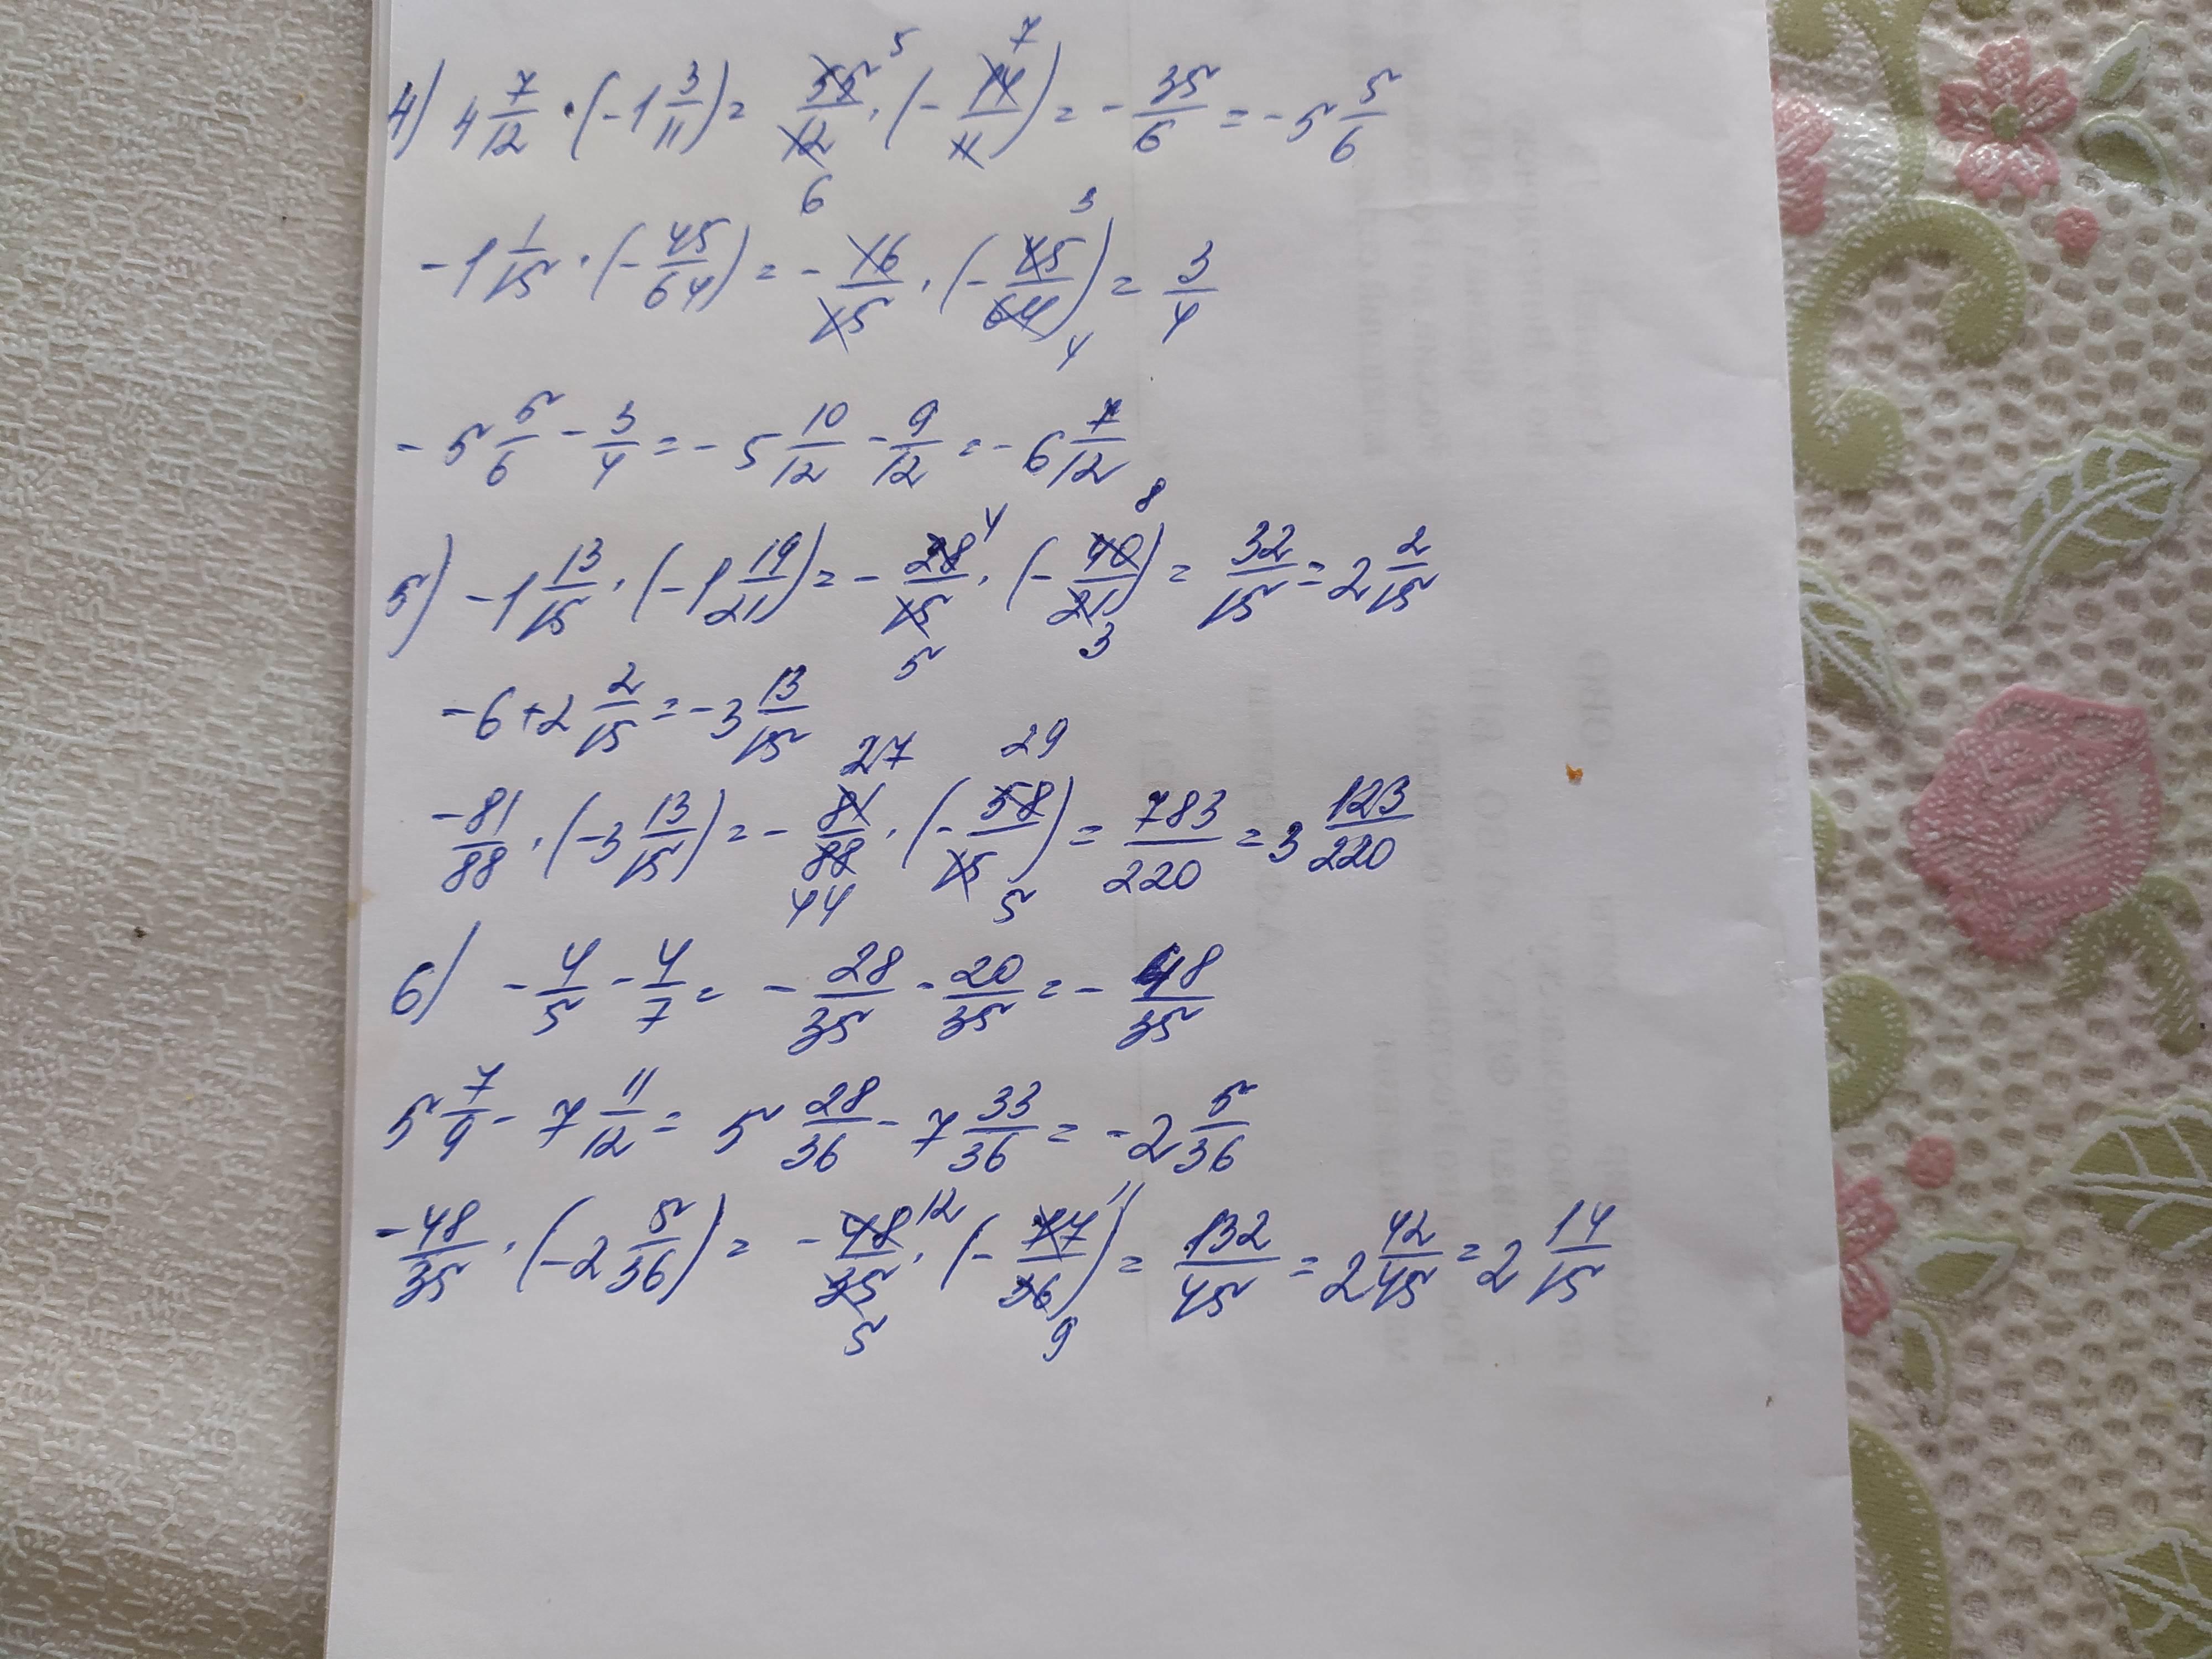 4) 4 7/12 · (-1 3/11) = 55/12 5 6 · (-14/11) 7 = -35/6 = -5 5/6
-1 1/15 · (-45/64) = -16/15 · (-45/64) 3 4 = 3/4
-5 5/6 - 3/4 = -5 10/12 - 9/12 = -6 7/12
5) -1 13/15 · (-1 19/21) = -28/15 4 5 · (-40/21) 8 3 = 32/15 = 2 2/15
-6 + 2 2/15 = -3 13/15
-81/88 · (-3 13/15) = -81/88 27 44 · (-58/15) 29 5 = 783/220 = 3 123/220
6) -4/5 - 4/7 = -28/35 - 20/35 = -48/35
5 7/9 - 7 11/12 = 5 28/36 - 7 33/36 = -2 5/36
-48/35 · (-2 5/36) = -48/35 12 5 · (-77/36) 11 9 = 132/45 = 2 42/45 = 2 14/15